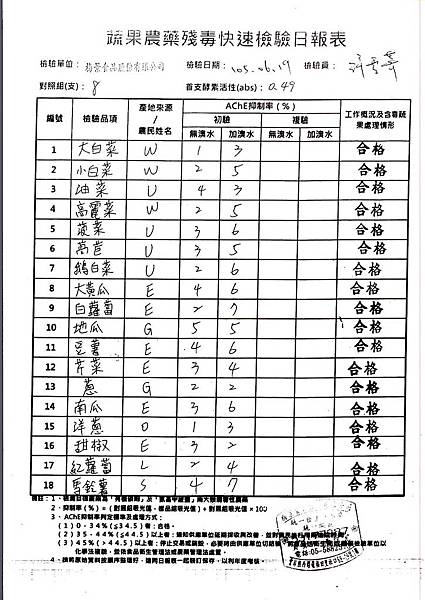 蔬果農藥殘毒快速檢驗日報表
檢驗單位： 檢驗日期：105.06.19 檢驗員：
對照組(支)：8 首支酵素活性(abs)：0.49
編號 檢驗品項 產地來源/農民姓名 AChE抑制率(%) 工作概況及含毒蔬果處理情形
初驗 複驗
無溴水 加溴水 無溴水 加溴水
1 大白菜 W 1 3 合格
2 小白菜 W 2 5 合格
3 油菜 U 4 3 合格
4 高麗菜 W 2 5 合格
5 菠菜 U 3 6 合格
6 萵苣 U 3 5 合格
7 鵝白菜 U 2 6 合格
8 大黃瓜 E 4 6 合格
9 白蘿蔔 E 2 7 合格
10 地瓜 G 5 5 合格
11 豆薯 E 4 6 合格
12 芹菜 E 3 4 合格
13 蔥 G 2 2 合格
14 南瓜 E 3 6 合格
15 洋蔥 O 1 3 合格
16 甜椒 E 3 2 合格
17 紅蘿蔔 L 2 4 合格
18 馬鈴薯 S 4 7 合格
2、抑制率(%)=(對照組吸光值-樣品組吸光值)÷對照組吸光值×100
3、AChE抑制率判定標準及處理方式：
(1)0-34%(≦34.5)者：合格。
(2)35-44%(≦44.5)以上者：
(3)45%(>44.5)以上者：